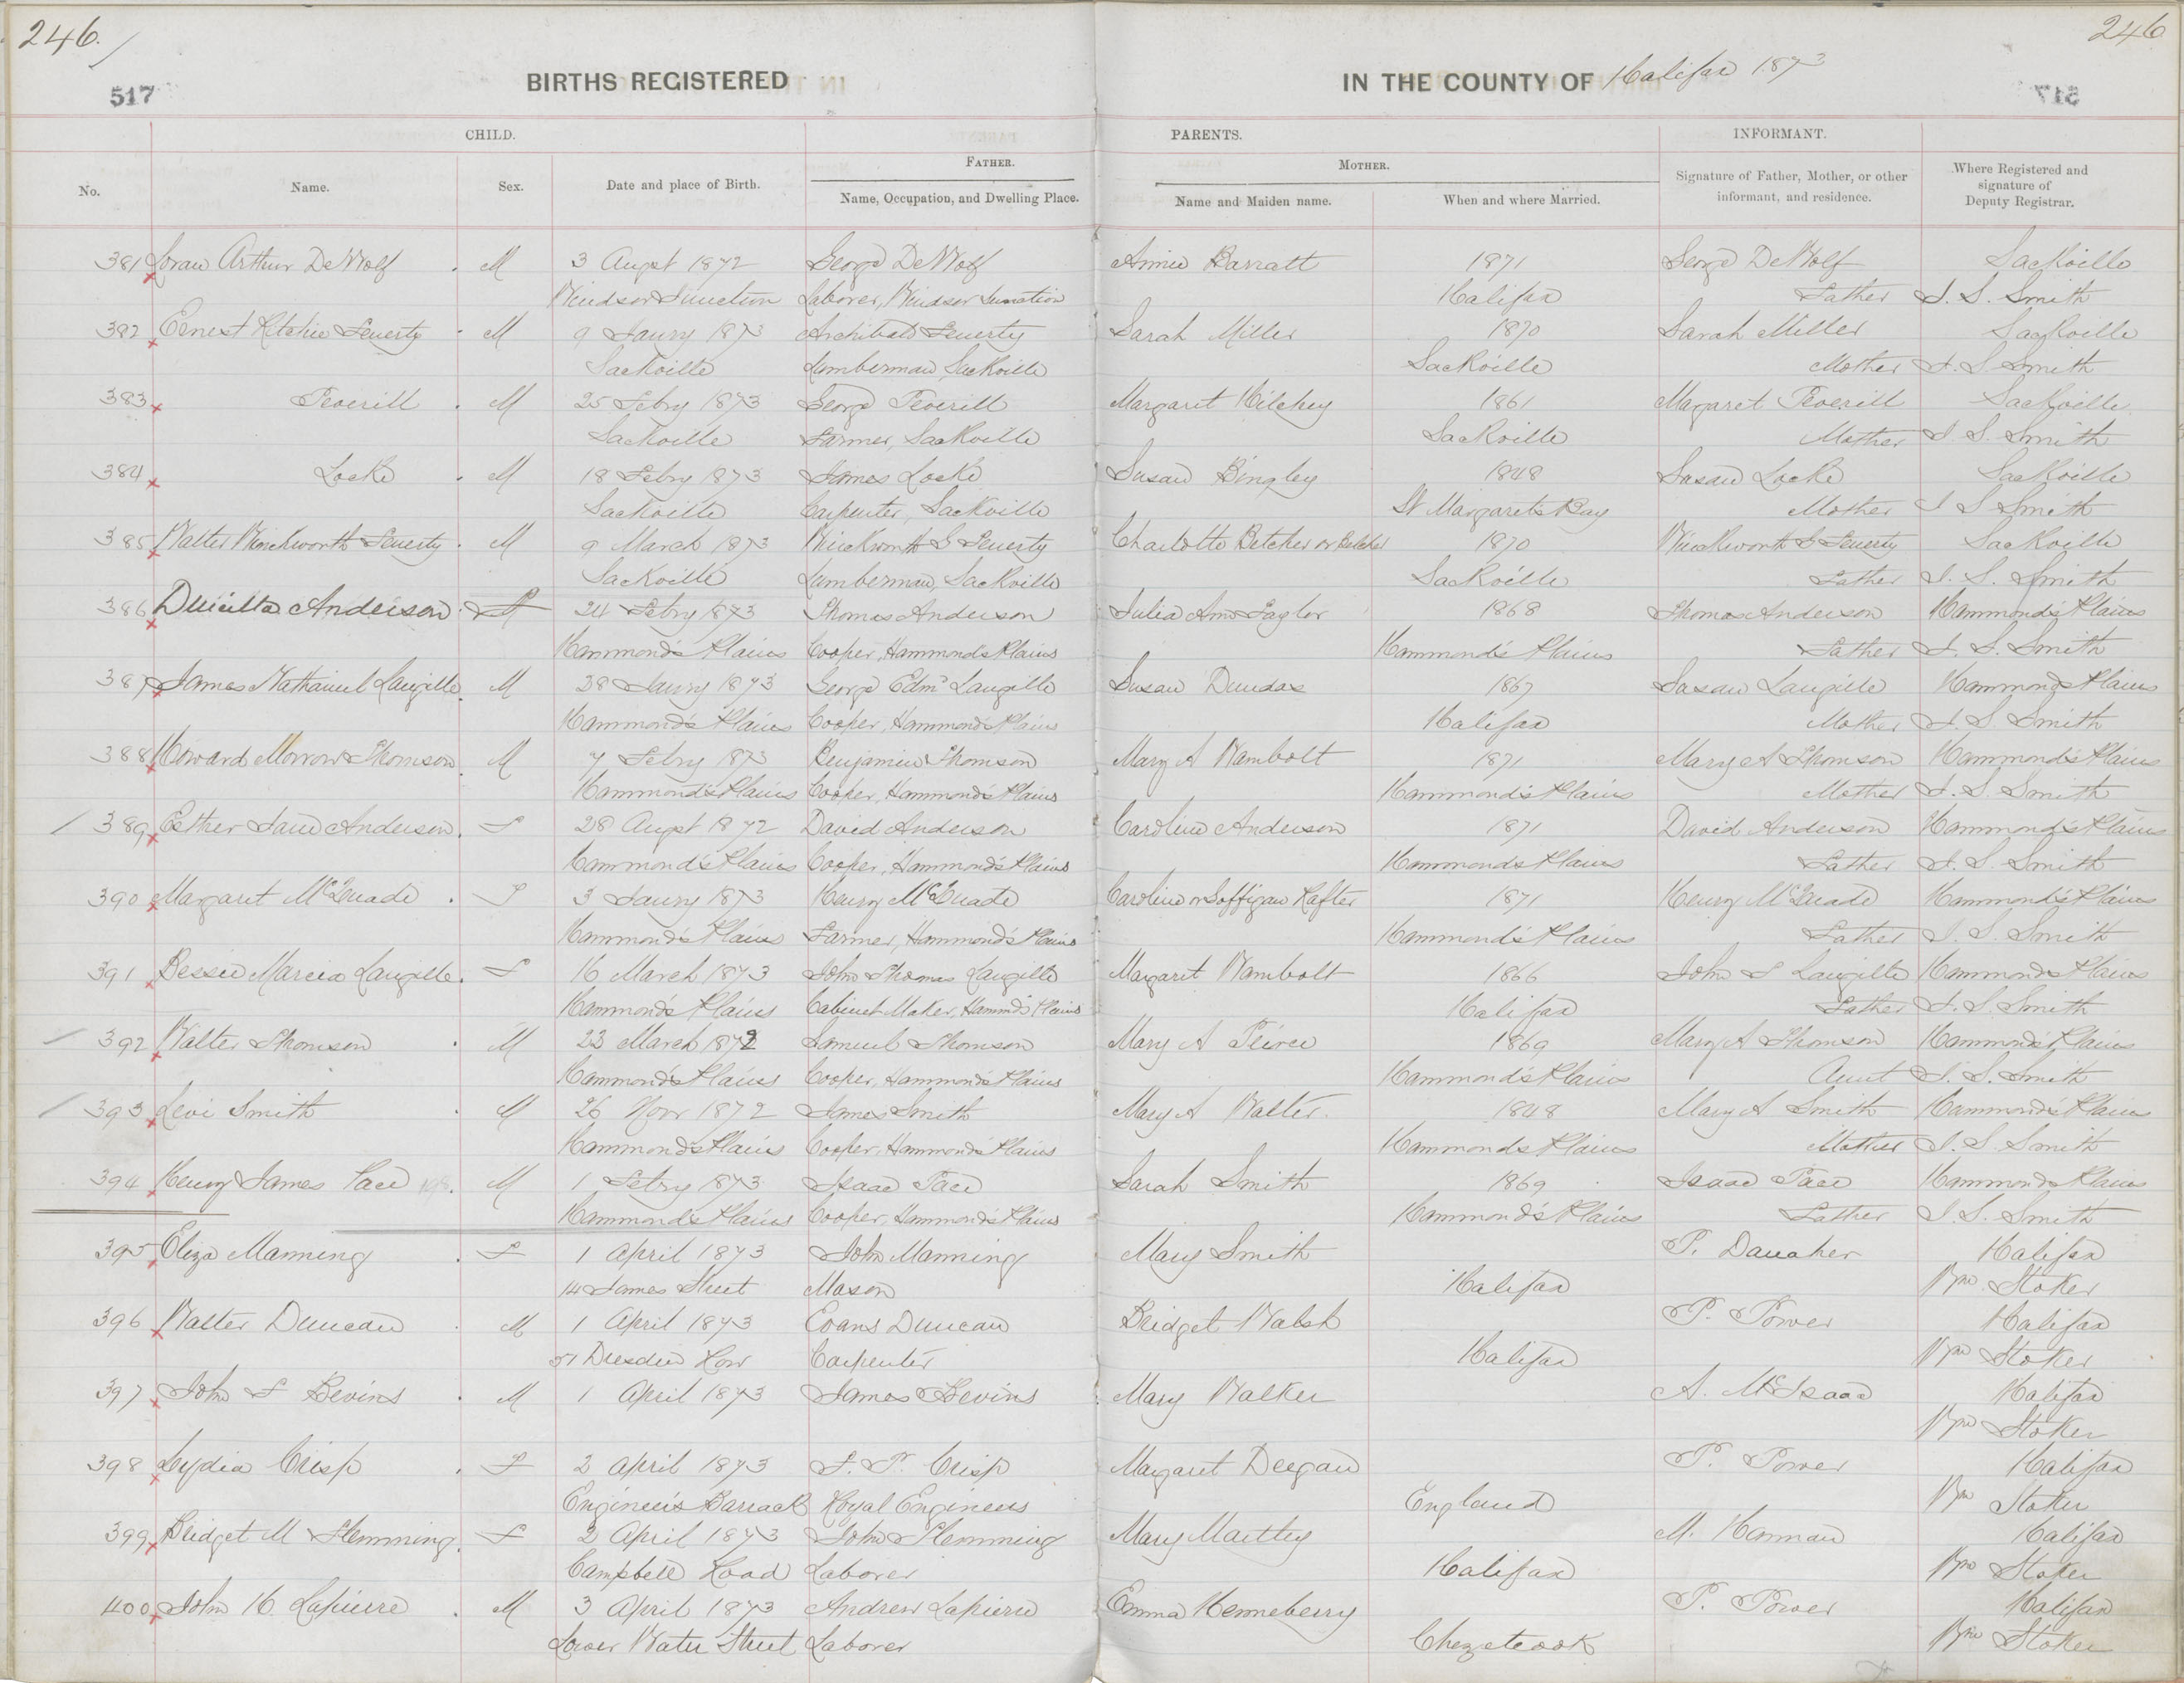 246. 246
517
BIRTHS REGISTERED IN THE COUNTY OF Halifax 1873
CHILD. PARENTS. INFORMANT.
No. Name. Sex. Date and place of Birth. FATHER. Name, Occupation, and Dwelling Place. MOTHER. Name and Maiden name. When and where Married. Signature of Father, Mother, or other informant, and residence. Where Registered and signature of Deputy Registrar.
381 Arthur DeWolf M 3 Augst 1872 George DeWolf Annie Barratt 1871 George DeWolf Sackville
Windsor Junction Laborer, Windsor Junction Halifax Father J. S. Smith
382 Ernest Ritchie Fenerty M 9 Jany 1873 Archibald Fenerty Sarah Miller 1870 Sarah Miller Sackville
Sackville Lumberman, Sackville Sackville Mother J. S. Smith
383 Peverill M 25 Febry 1873 George Peverill Margaret Hilchey 1861 Margaret Peverill Sackville
Sackville Farmer, Sackville Sackville Mother J. S. Smith
384 Locke M 18 Febry 1873 James Locke Susan Bingley 1848 Susan Locke Sackville
Sackville Carpenter, Sackville St Margarets Bay Mother J S Smith
385 Walter Winckworth Fenerty M 9 March 1873 Winckworth S Fenerty Charlotte Betcher or Belcher 1870 Winckworth S Fenerty Sackville
Sackville Lumberman, Sackville Sackville Father J. S. Smith
386 Drucilla Anderson F 24 Febry 1873 Thomas Anderson Julia Ann Taylor 1868 Thomas Anderson Hammond's Plains
Hammond's Plains Cooper, Hammonds Plains Hammond's Plains Father J. S. Smith
387 James Nathaniel Langille M 28 Jany 1873 George Edmd Langille Susan Dundas 1867 Susan Langille Hammonds Plains
Hammond's Plains Cooper, Hammond's Plains Halifax Mother J. S. Smith
388 Howard Morrow Thomson M 7 Febry 1873 Benjamin Thomson Mary A Wambolt 1871 Mary A Thomson Hammond's Plains
Hammond's Plains Cooper, Hammond's Plains Hammond's Plains Mother J. S. Smith
389 Esther Jane Anderson F 28 Augst 1872 David Anderson Caroline Anderson 1871 David Anderson Hammond's Plains
Hammond's Plains Cooper, Hammond's Plains Hammonds Plains Father J. S. Smith
390 Margaret McQuade F 3 Jany 1873 Henry McQuade Caroline or Hafter 1871 Henry McQuade Hammond's Plains
Hammond's Plains Farmer, Hammond's Plains Hammond's Plains Father J. S. Smith
391 Bessie Marcia Langille F 16 March 1873 John Thomas Langille Margaret Wambolt 1866 John T Langille Hammonds Plains
Hammonds Plains Cabinet Maker, Hammds Plains Halifax Father J. S. Smith
392 Walter Thomson M 23 March 1872 Samuel Thomson Mary A Peirce 1869 Mary A Thomson Hammond's Plains
Hammond's Plains Cooper, Hammond's Plains Hammond's Plains Aunt J. S. Smith
393 Levi Smith M 26 Novr 1872 James Smith Mary A Walter 1848 Mary A Smith Hammond's Plains
Hammond's Plains Cooper, Hammonds Plains Hammonds Plains Mother J. S. Smith
394 Henry James Pace M 1 Febry 1873 Isaac Pace Sarah Smith 1869 Isaac Pace Hammonds Plains
Hammond's Plains Cooper, Hammonds Plains Hammond's Plains Father J. S. Smith
395 Eliza Manning F 1 April 1873 John Manning Mary Smith P. Danaher Halifax
14 James Street Mason Halifax Wm Stoker
396 Walter Duncan M 1 April 1873 Evans Duncan Bridget Walsh P. Power Halifax
57 Dresden Row Carpenter Halifax Wm Stoker
397 John S Bevins M 1 April 1873 James Bevins Mary Walker A. McIsaac Halifax
Wm Stoker
398 Lydia Crisp F 2 April 1873 Crisp Margaret Deegan P. Power Halifax
Engineer's Barrack Royal Engineers England Wm Stoker
399 Bridget M Flemming F 2 April 1873 John Flemming Mary Martley M. Hannan Halifax
Campbell Road Laborer Halifax Wm Stoker
400 John H Lapierre M 3 April 1873 Andrew Lapierre Emma Henneberry P. Power Halifax
Lower Water Street Laborer Chezetcook Wm Stoker